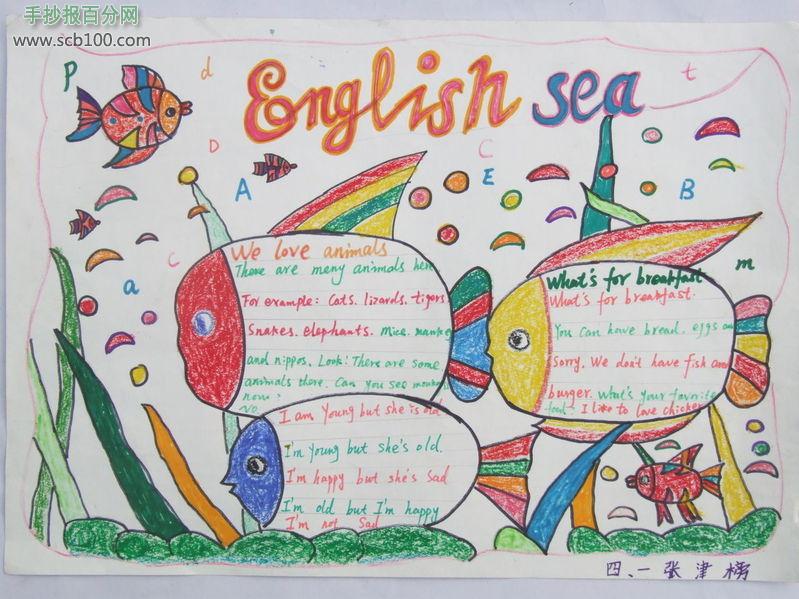 手抄报百分网
www.scb100.com
P
d
English sea
t
D
A
C
E
B
C
a
m
We love animals
There are meny animals here
For example: Cats. lizards. tigers
Snakes. elephants. Mice. monkey
and nippos. Look! There are some
animals there. Can you see monkey
now?
No
What's for breakfast
What's for breakfast.
You can have bread. eggs an
Sorry. We don't have fish and
burger. What's your favorite
food? I like to love chicken
I am Young but she is old
I'm young but she's old.
I'm happy but she's Sad
I'm old but I'm happy
I'm not Sad
四、一 张津榜